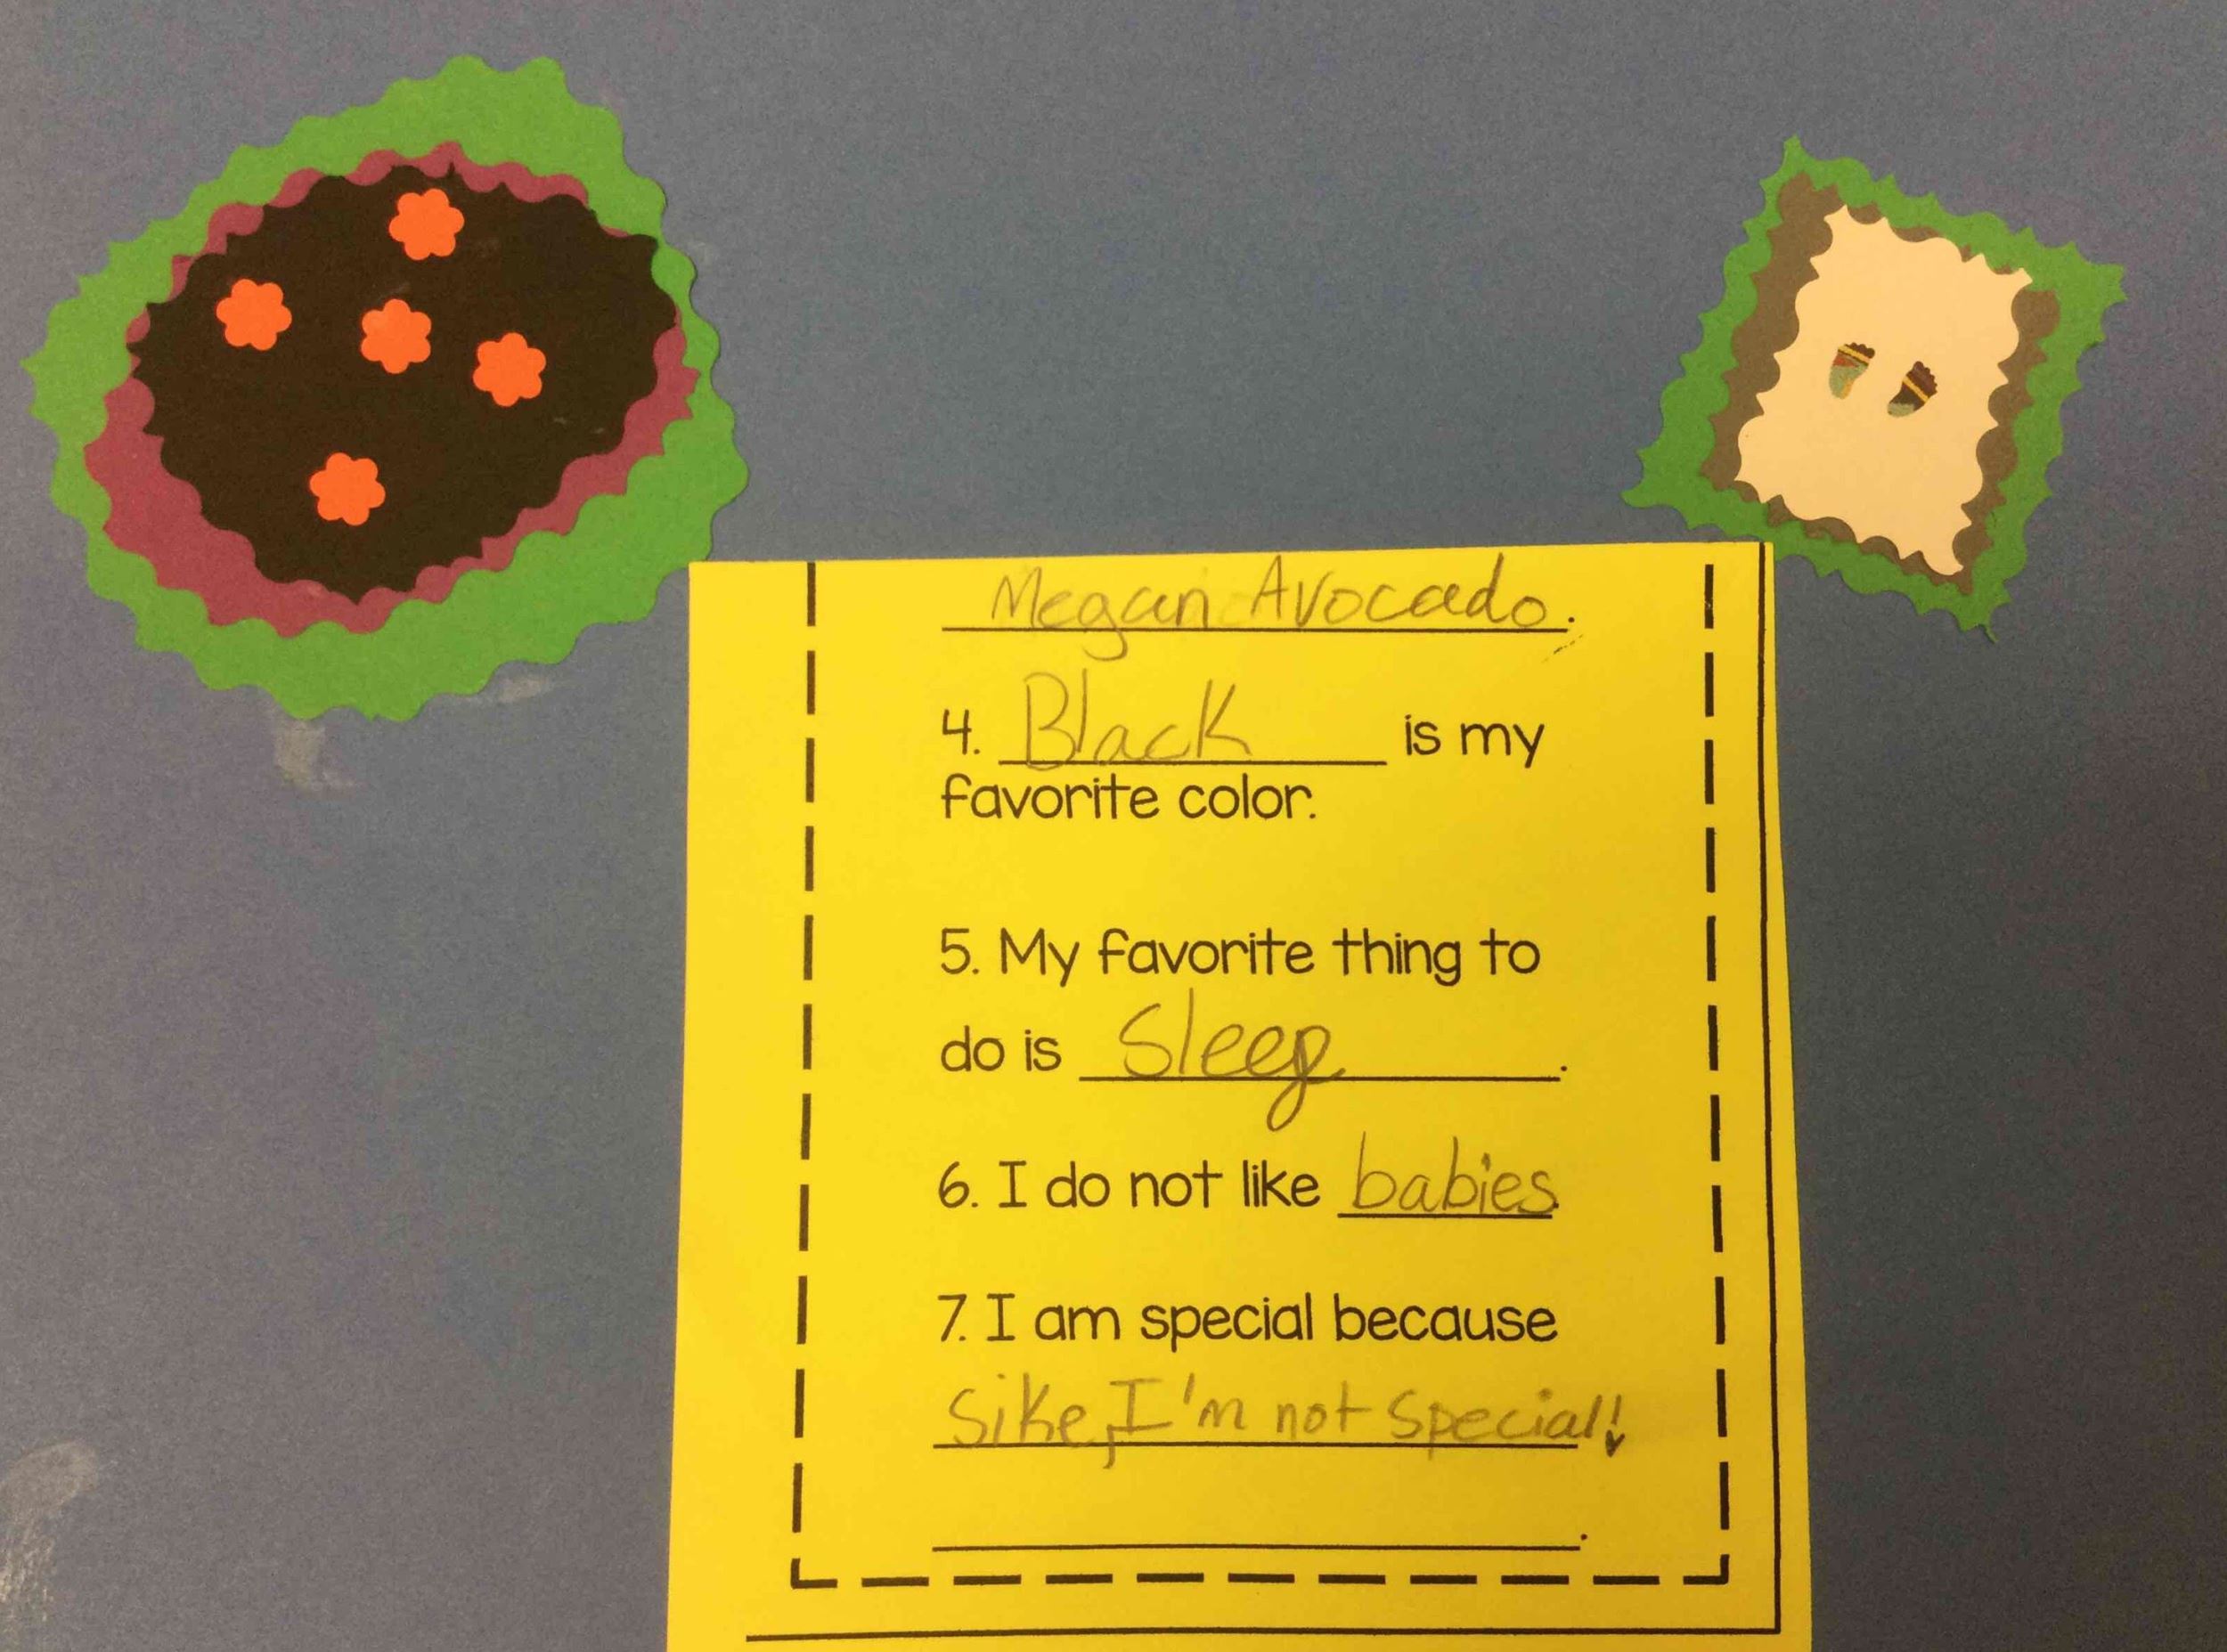 Megan Avocado.
4. Black is my
favorite color.
5. My favorite thing to
do is Sleep.
6. I do not like babies.
7. I am special because
Sike, I'm not special!
.